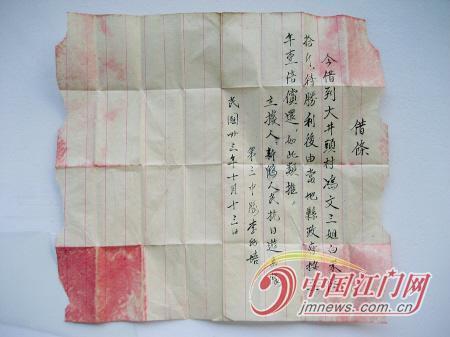 借條
今借到大井頭村馮文三姐白米
拾斤待勝利後由當地縣政府按
年壹倍償還，如此類推。
立據人：新鶴人民抗日遊
第三中隊李
民國卅三年十月十三日
中国江门网
www.jmnews.com.cn